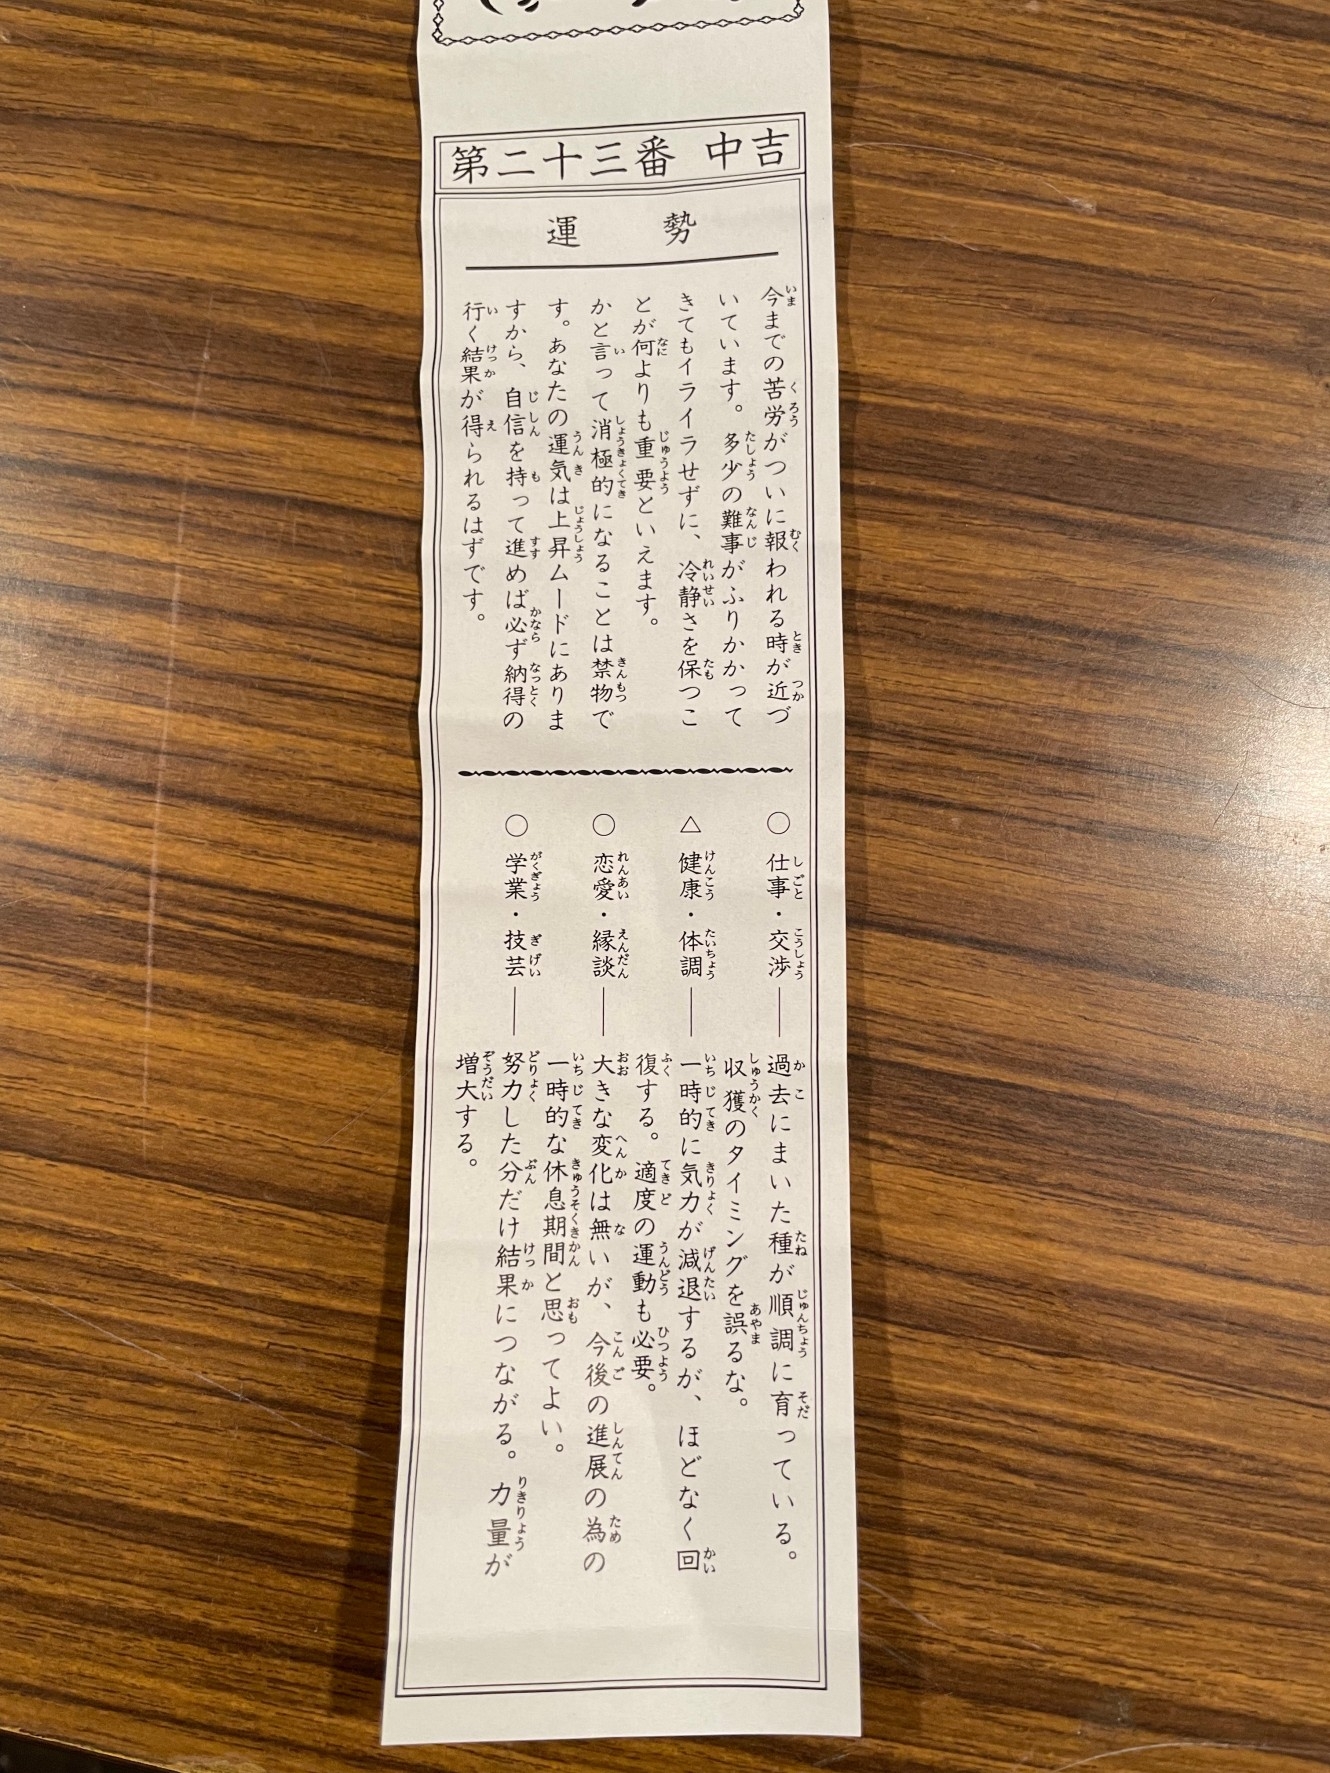 第二十三番 中吉
運勢
今までの苦労がついに報われる時が近づ
いています。多少の難事がふりかかって
きてもイライラせずに、冷静さを保つこ
とが何よりも重要といえます。
かと言って消極的になることは禁物で
す。あなたの運気は上昇ムードにありま
すから、自信を持って進めば必ず納得の
行く結果が得られるはずです。
○仕事・交渉―過去にまいた種が順調に育っている。
収獲のタイミングを誤るな。
△健康・体調―一時的に気力が減退するが、ほどなく回
復する。適度の運動も必要。
○恋愛・縁談―大きな変化は無いが、今後の進展の為の
一時的な休息期間と思ってよい。
○学業・技芸―努力した分だけ結果につながる。力量が
増大する。